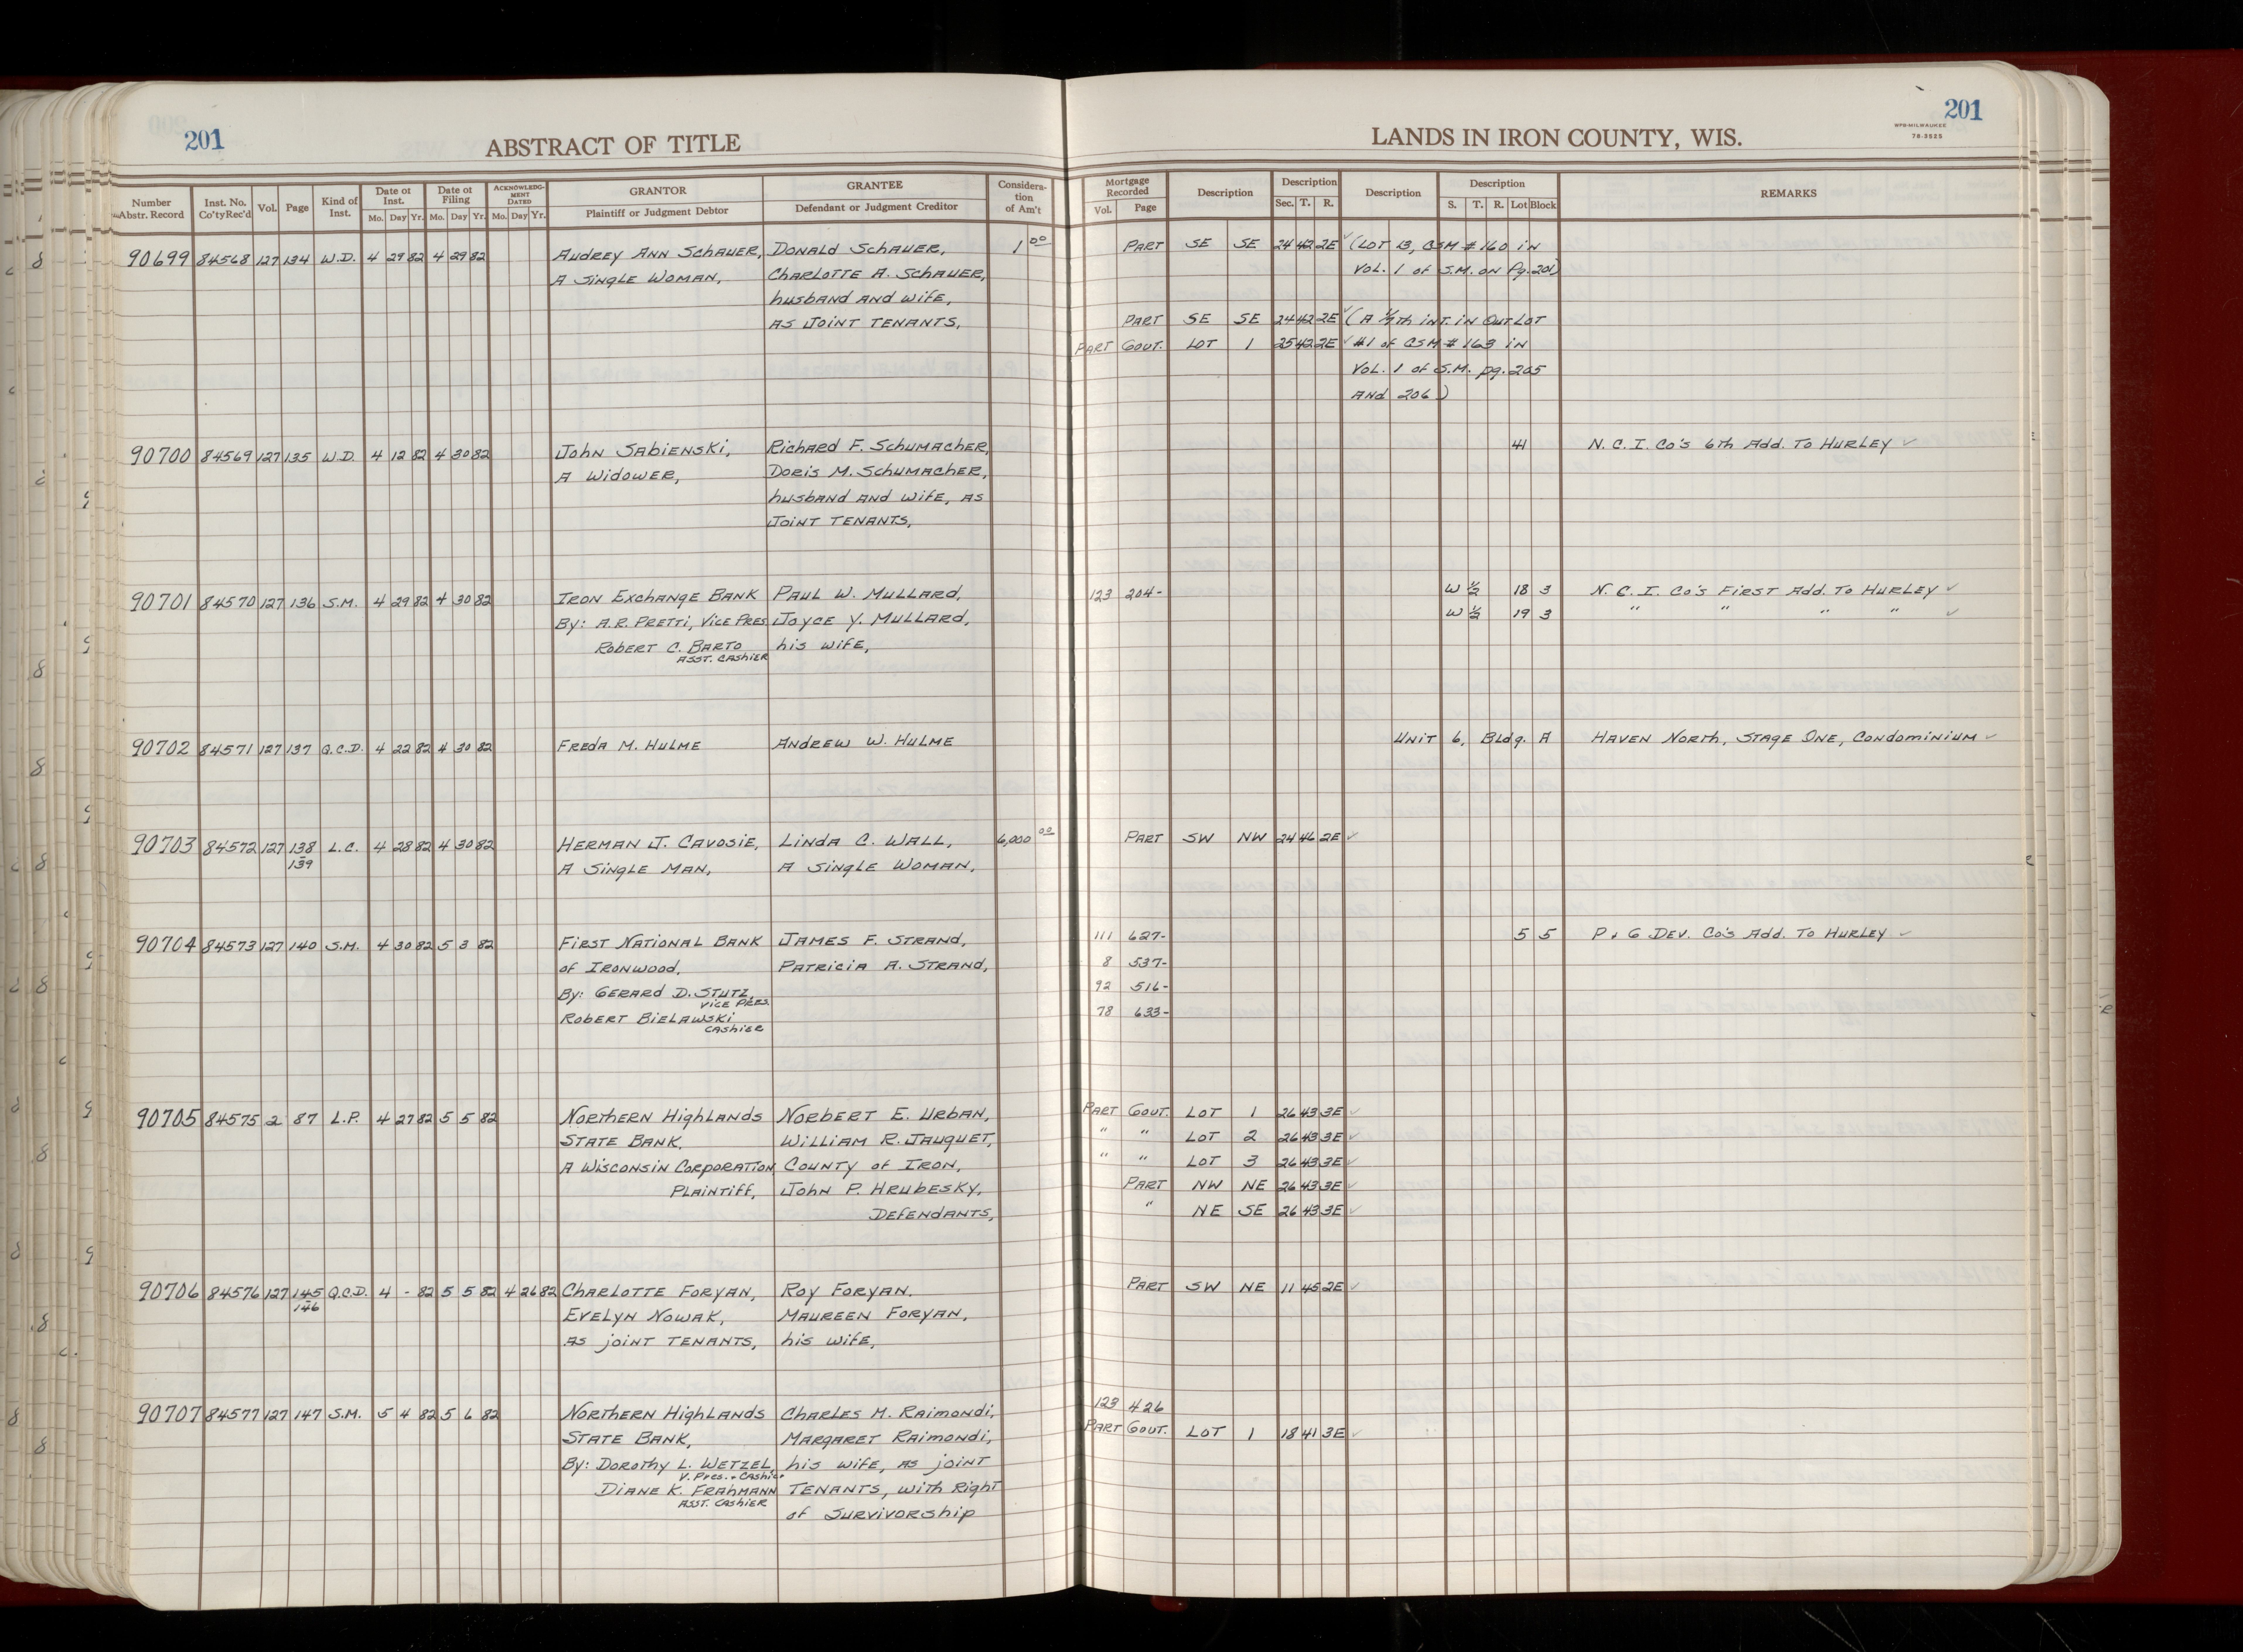 201
ABSTRACT OF TITLE
Number Abstr. Record | Inst. No. Co'ty Rec'd | Vol. | Page | Kind of Inst. | Date of Inst. Mo. Day Yr. | Date of Filing Mo. Day Yr. | ACKNOWLEDGMENT DATED Mo. Day Yr. | GRANTOR Plaintiff or Judgment Debtor | GRANTEE Defendant or Judgment Creditor | Consideration of Am't
90699 84568 127 134 W.D. 4 29 82 4 29 82 Audrey Ann Schauer, Donald Schauer, 1 00
A Single Woman, Charlotte A. Schauer,
husband and wife,
as Joint Tenants,
90700 84569 127 135 W.D. 4 12 82 4 30 82 John Sabienski, Richard F. Schumacher,
A Widower, Doris M. Schumacher,
husband and wife, as
Joint Tenants,
90701 84570 127 136 S.M. 4 29 82 4 30 82 Iron Exchange Bank Paul W. Mullard,
By: A.R. Pretti, Vice Pres Joyce Y. Mullard,
Robert C. Barto his wife,
Asst. Cashier
90702 84571 127 137 Q.C.D. 4 22 82 4 30 82 Freda M. Hulme Andrew W. Hulme
90703 84572 127 138 L.C. 4 28 82 4 30 82 Herman J. Cavosie, Linda C. Wall, 6,000 00
139 A Single Man, A Single Woman,
90704 84573 127 140 S.M. 4 30 82 5 3 82 First National Bank James F. Strand,
of Ironwood, Patricia A. Strand,
By: Gerard D. Stutz,
Vice Pres.
Robert Bielawski
Cashier
90705 84575 2 87 L.P. 4 27 82 5 5 82 Northern Highlands Norbert E. Urban,
State Bank, William R. Jauquet,
A Wisconsin Corporation County of Iron,
Plaintiff, John P. Hrubesky,
Defendants,
90706 84576 127 145 Q.C.D. 4 - 82 5 5 82 4 26 82 Charlotte Foryan, Roy Foryan.
146 Evelyn Nowak, Maureen Foryan,
as joint Tenants, his wife,
90707 84577 127 147 S.M. 5 4 82 5 6 82 Northern Highlands Charles M. Raimondi,
State Bank, Margaret Raimondi,
By: Dorothy L. Wetzel, his wife, as joint
V. Pres. + Cashier
Diane K. Frahmann Tenants, with Right
Asst. Cashier
of Survivorship
201
WPB-MILWAUKEE
78-3525
LANDS IN IRON COUNTY, WIS.
Mortgage Recorded Vol. Page | Description | Description Sec. T. R. | Description | Description S. T. R. Lot Block | REMARKS
Part SE SE 24 42 2E ✓ (Lot 13, CSM # 160 in
Vol. 1 of S.M. on Pg. 201)
Part SE SE 24 42 2E ✓ (A 1/7th int. in Outlot
Part Gout. Lot 1 25 42 2E ✓ #1 of CSM # 163 in
Vol. 1 of S.M. pg. 205
and 206)
41 N.C.I. Co's 6th Add. To Hurley ✓
123 204- W 1/2 18 3 N.C.I. Co's First Add. To Hurley ✓
W 1/2 19 3 " " " " ✓
Unit 6, Bldg. A Haven North, Stage One, Condominium ✓
Part SW NW 24 46 2E ✓
111 627- 5 5 P + G Dev. Co's Add. To Hurley ✓
8 537-
92 516-
78 633-
Part Gout. Lot 1 26 43 3E ✓
" " Lot 2 26 43 3E ✓
" " Lot 3 26 43 3E ✓
Part NW NE 26 43 3E ✓
" NE SE 26 43 3E ✓
Part SW NE 11 45 2E ✓
123 426
Part Gout. Lot 1 18 41 3E ✓